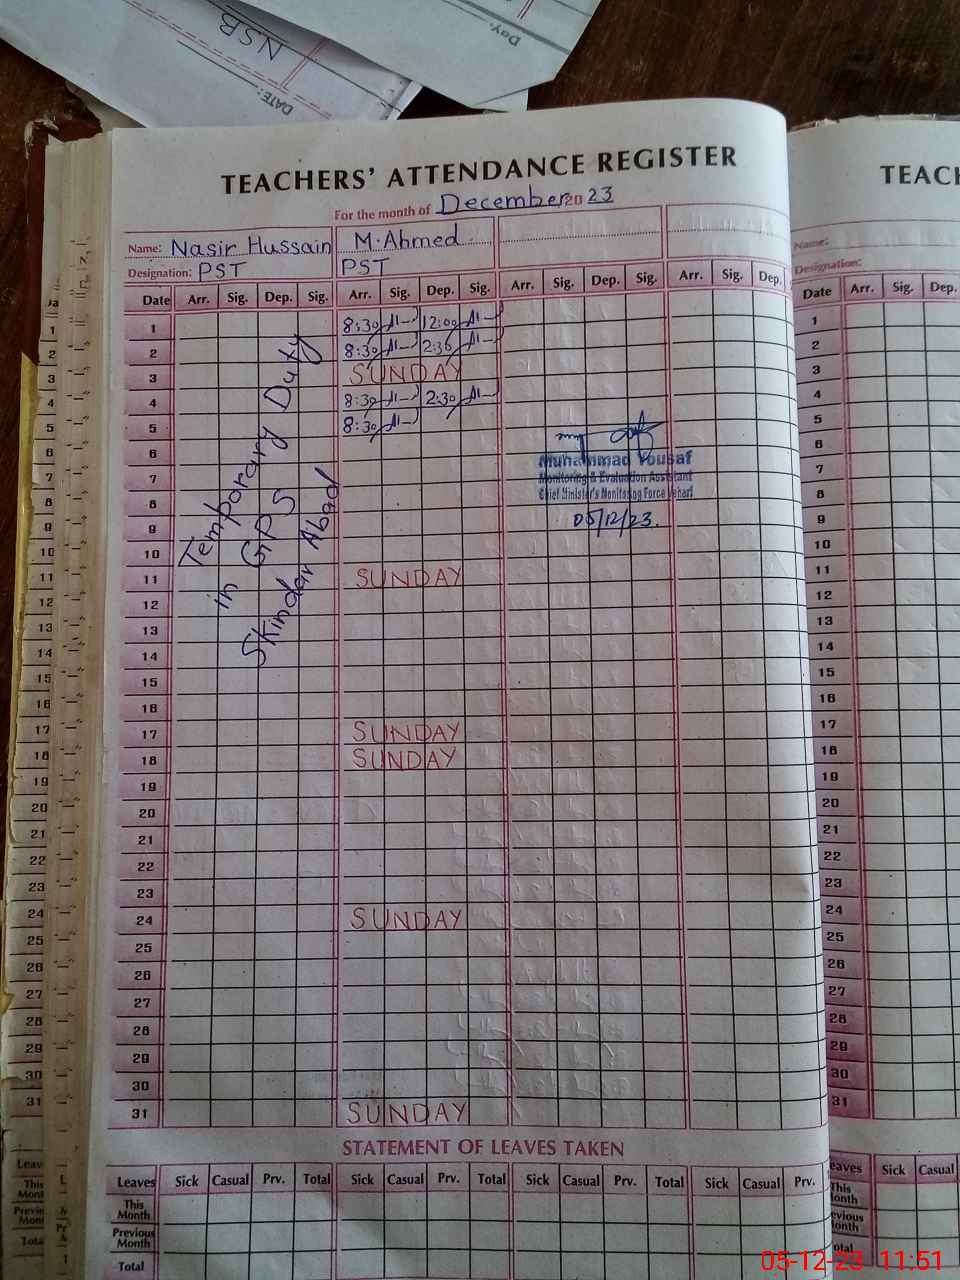 NSB
DATE:
Day.
TEACHERS' ATTENDANCE REGISTER
For the month of December 20 23
Name: Nasir Hussain M.Ahmed
Designation: PST PST
Date Arr. Sig. Dep. Sig. Arr. Sig. Dep. Sig. Arr. Sig. Dep. Sig. Arr. Sig. Dep.
1 8:30 12:00
2 8:30 2:30
3 SUNDAY
4 8:30 2:30
5 8:30
6
7
8
9
10
11 SUNDAY
12
13
14
15
16
17 SUNDAY
18 SUNDAY
19
20
21
22
23
24 SUNDAY
25
26
27
28
29
30
31 SUNDAY
Temporary Duty
in GPS
Skinder Abad
Muhammad Yousaf
Monitoring & Evaluation Assistant
Chief Minister's Monitoring Force Vehari
05/12/23.
STATEMENT OF LEAVES TAKEN
Leaves Sick Casual Prv. Total Sick Casual Prv. Total Sick Casual Prv. Total Sick Casual Prv.
This Month
Previous Month
Total
TEACH
Name:
Designation:
Date Arr. Sig. Dep.
1
2
3
4
5
6
7
8
9
10
11
12
13
14
15
16
17
18
19
20
21
22
23
24
25
26
27
28
29
30
31
eaves Sick Casual
This
onth
evious
onth
otal
05-12-23 11:51